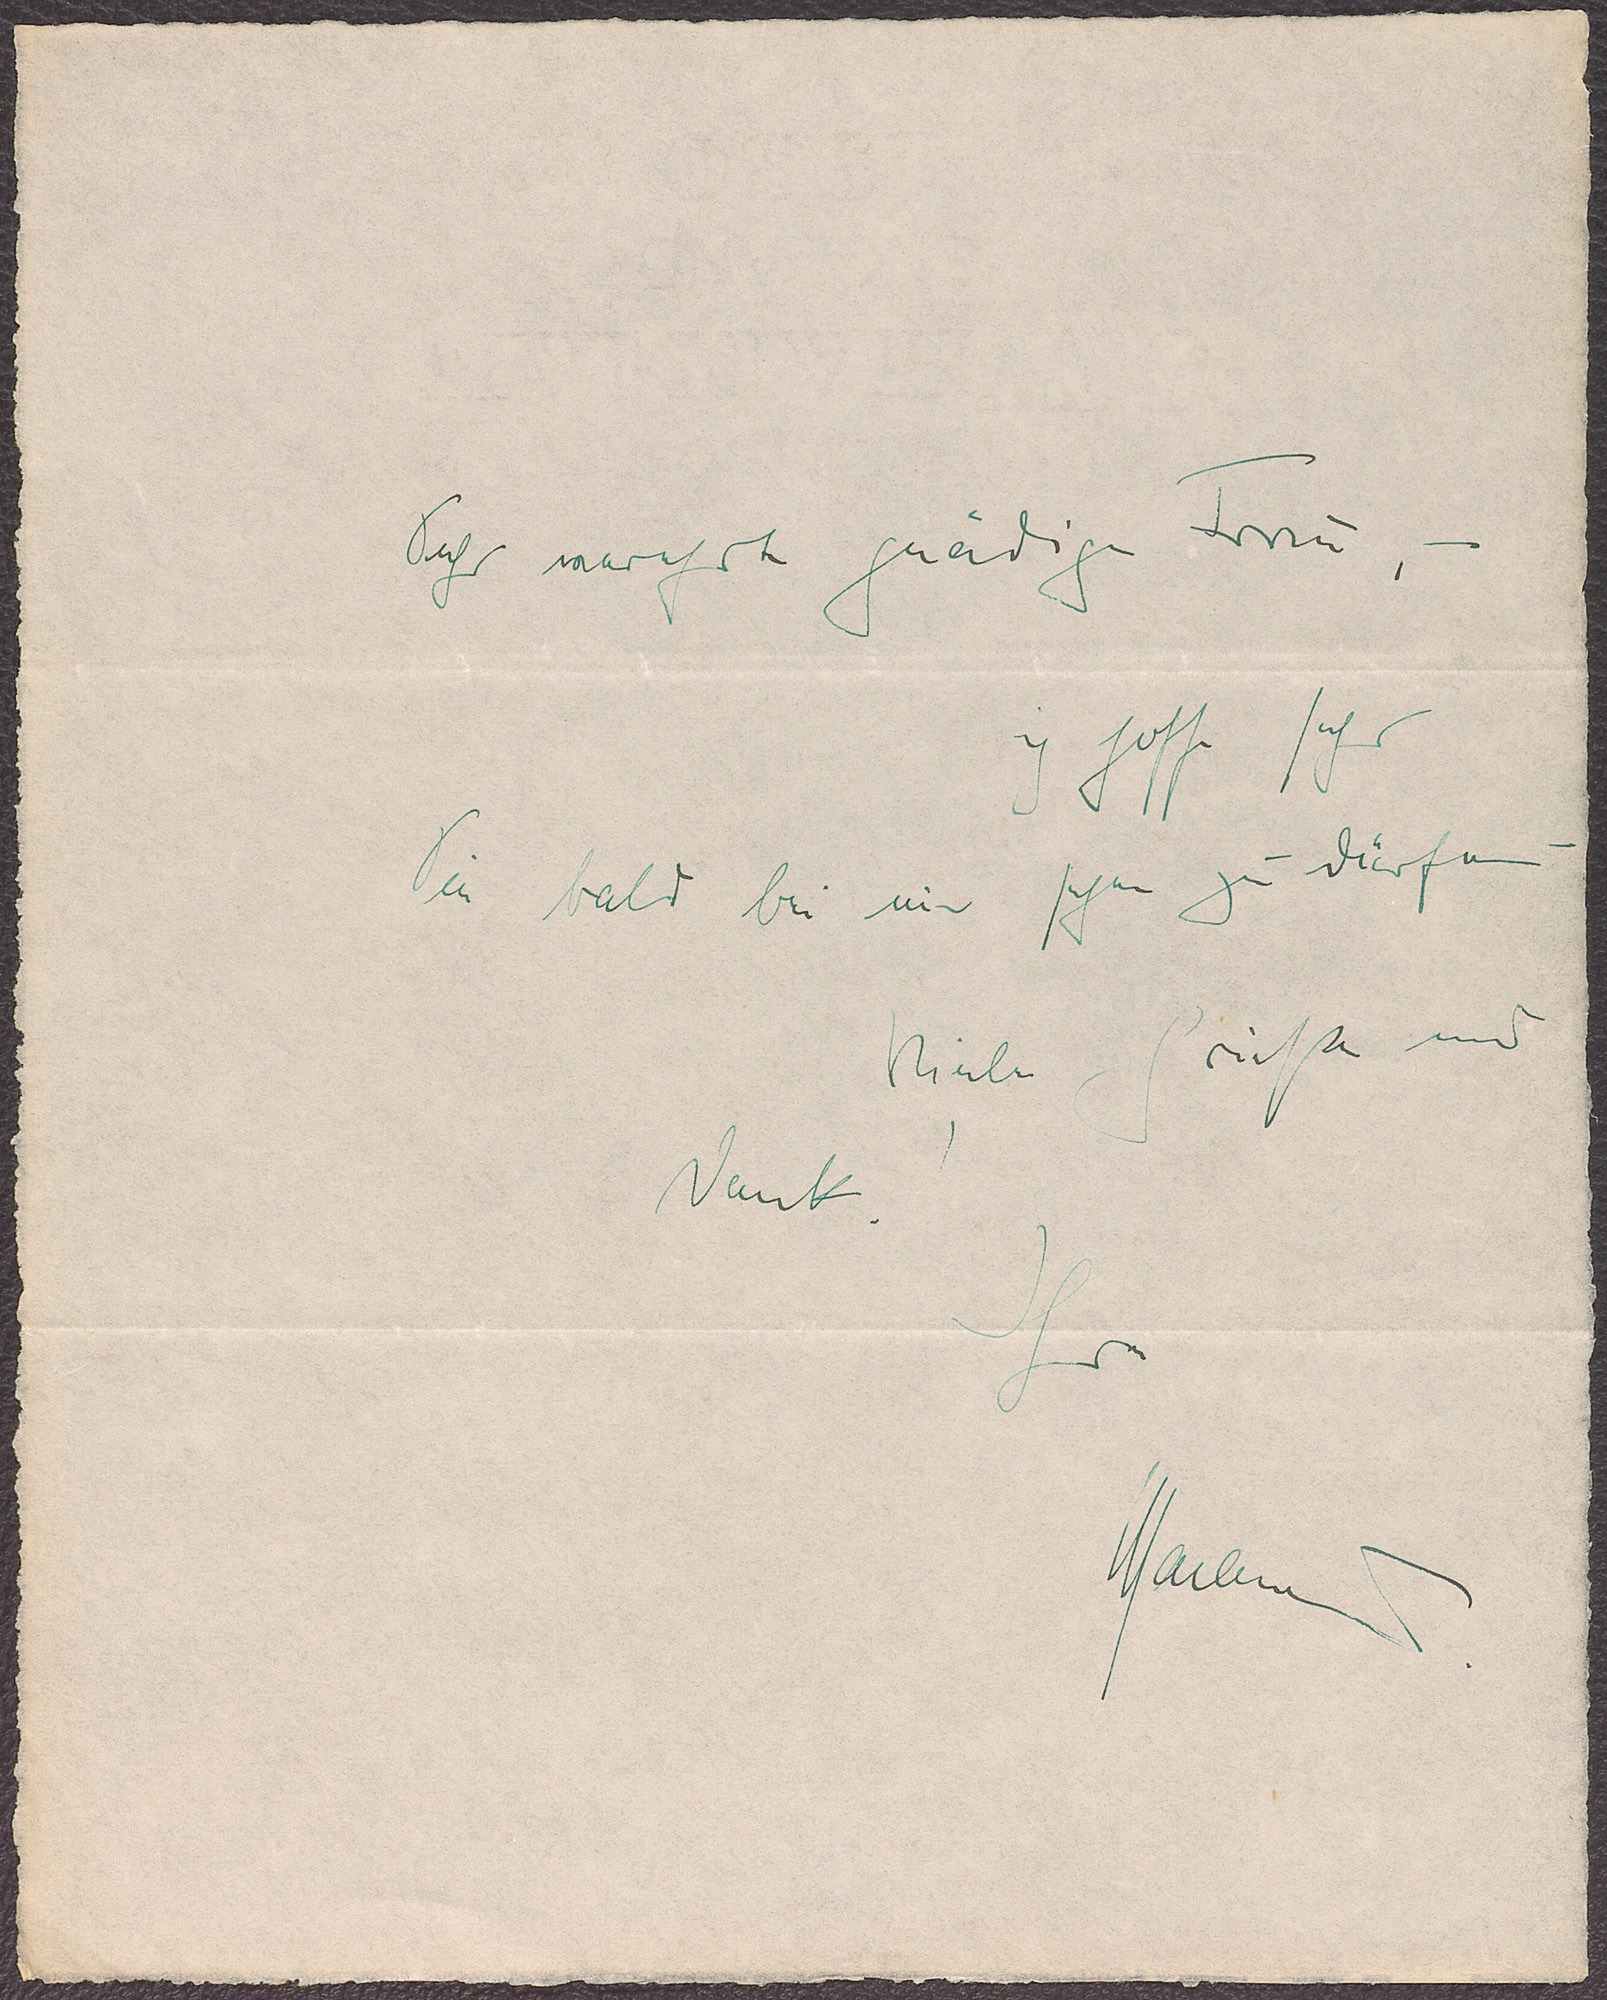 Sehr verehrte gnädige Frau, —
ich hoffe sehr
Sie bald bei mir sehen zu dürfen —
Viele Grüsse und
Dank!
Ihre
Marlene